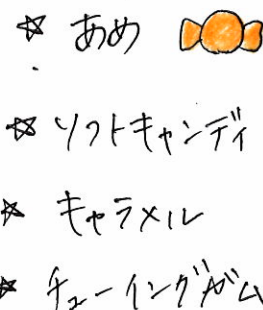 ☆ あめ
☆ ソフトキャンディ
☆ キャラメル
☆ チューインガム